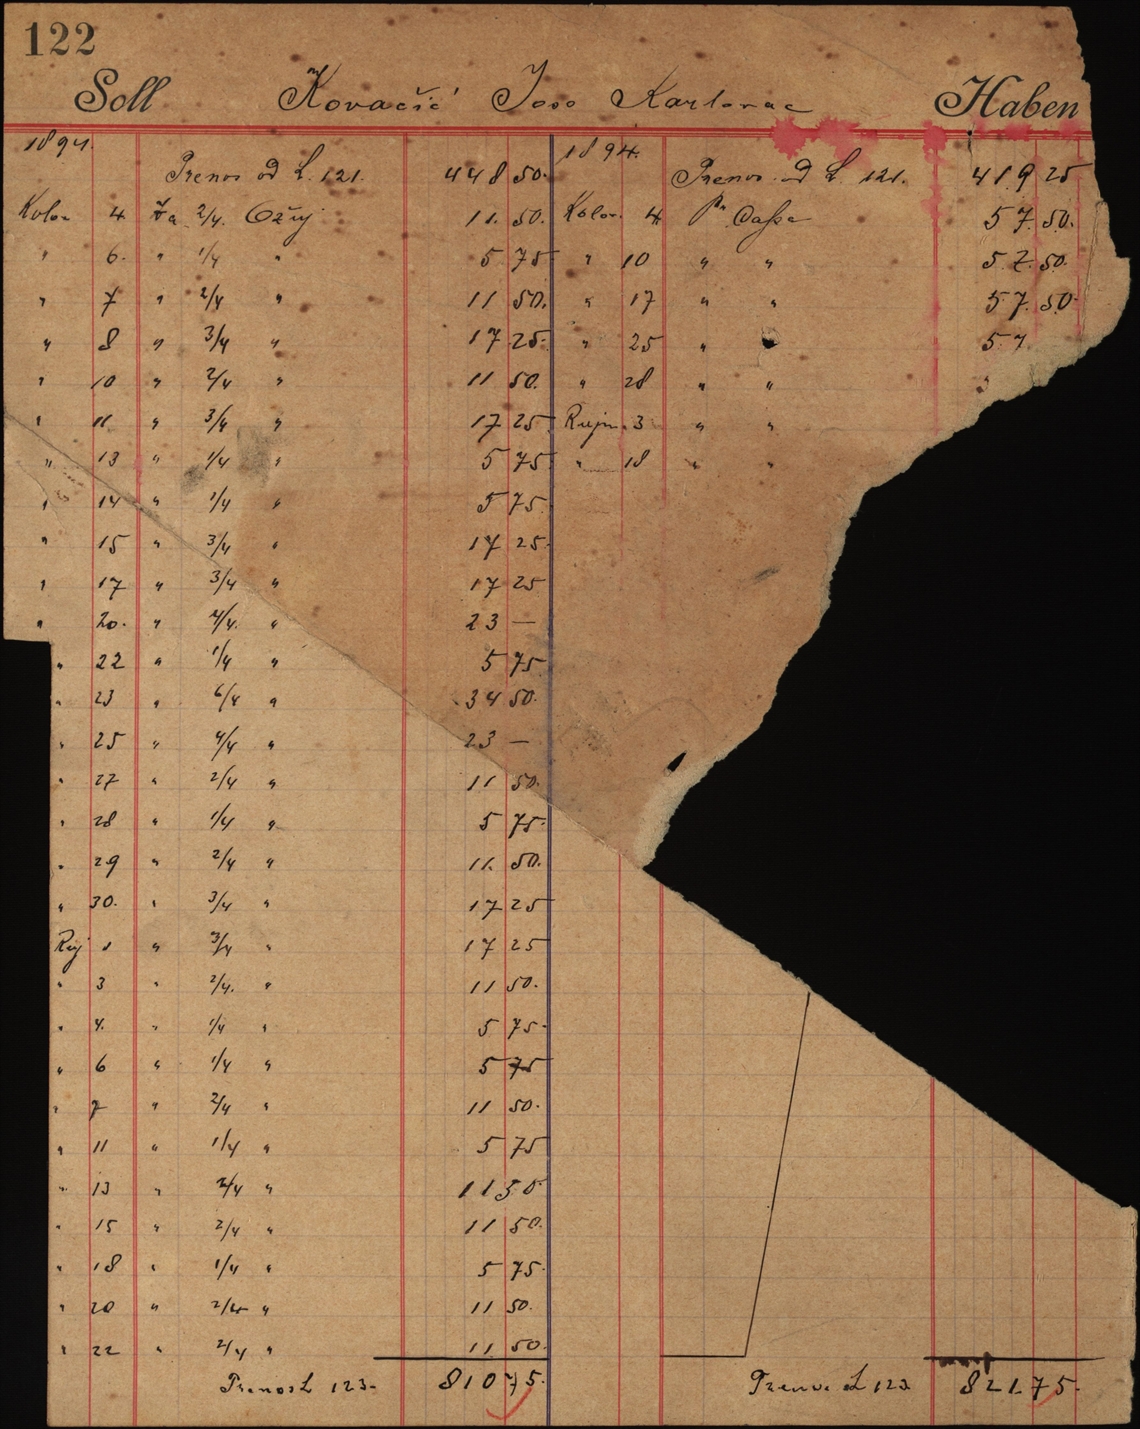 122
Soll Kovačić Joso Karlovac Haben
1894. 1894.
Prenos od L. 121. 448 50. Prenos od L. 121. 419 25
Kolov. 4 Za 2/4. Ožuj 11. 50. Kolov. 4 Pr Cassa 57. 50.
" 6. " 1/4 " 5 75 " 10 " " 57. 50.
" 7 " 2/4 " 11 50. " 17 " " 57. 50.
" 8 " 3/4 " 17 25. " 25 " 57.
" 10 " 2/4 " 11 50. " 28 " "
" 11 " 3/4 " 17 25 Rujn. 3 " "
" 13 " 1/4 " 5 75 " 18 " "
" 14 " 1/4 " 5 75.
" 15 " 3/4 " 17 25.
" 17 " 3/4 " 17 25
" 20. " 4/4. " 23 —
" 22 " 1/4 " 5 75
" 23 " 6/4 " 34 50.
" 25 " 4/4 " 23 —
" 27 " 2/4 " 11 50.
" 28 " 1/4 " 5 75.
" 29 " 2/4 " 11. 50.
" 30. " 3/4 " 17 25
Ruj 1 " 3/4 " 17 25
" 3 " 2/4. " 11 50.
" 4. " 1/4 " 5 75.
" 6 " 1/4 " 5 75
" 7 " 2/4 " 11 50.
" 11 " 1/4 " 5 75
" 13 " 2/4 " 11 50
" 15 " 2/4 " 11 50.
" 18 " 1/4 " 5 75.
" 20 " 2/4 " 11 50.
" 22 " 2/4 " 11 50.
Prenos L 123. 810 75. Prenos L 123 821.75.